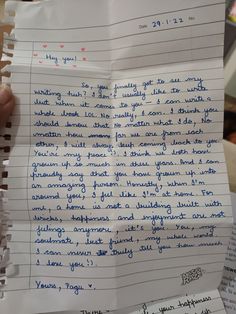 Date 29.1.22
Hey you!
So, you finally got to see my
writing huh? I don't usually like to write
but when it comes to you - I can write a
whole book LOL. No really, I can. I think you
should know that No matter what I do, No
matter how far we are from each
other, I will always keep coming back to you.
You're my peace :). I think we both have
grown up so much in these years. And I can
proudly say that you have grown up into
an amazing person. Honestly, when I'm
around you, I feel like I'm at home. For
me, a home is not a building built with
bricks, happiness and enjoyment are not
feelings anymore it's you. You, my
soulmate, best friend, my whole world
I can never truly tell you how much
I love you! :).
Yours,
your happiness